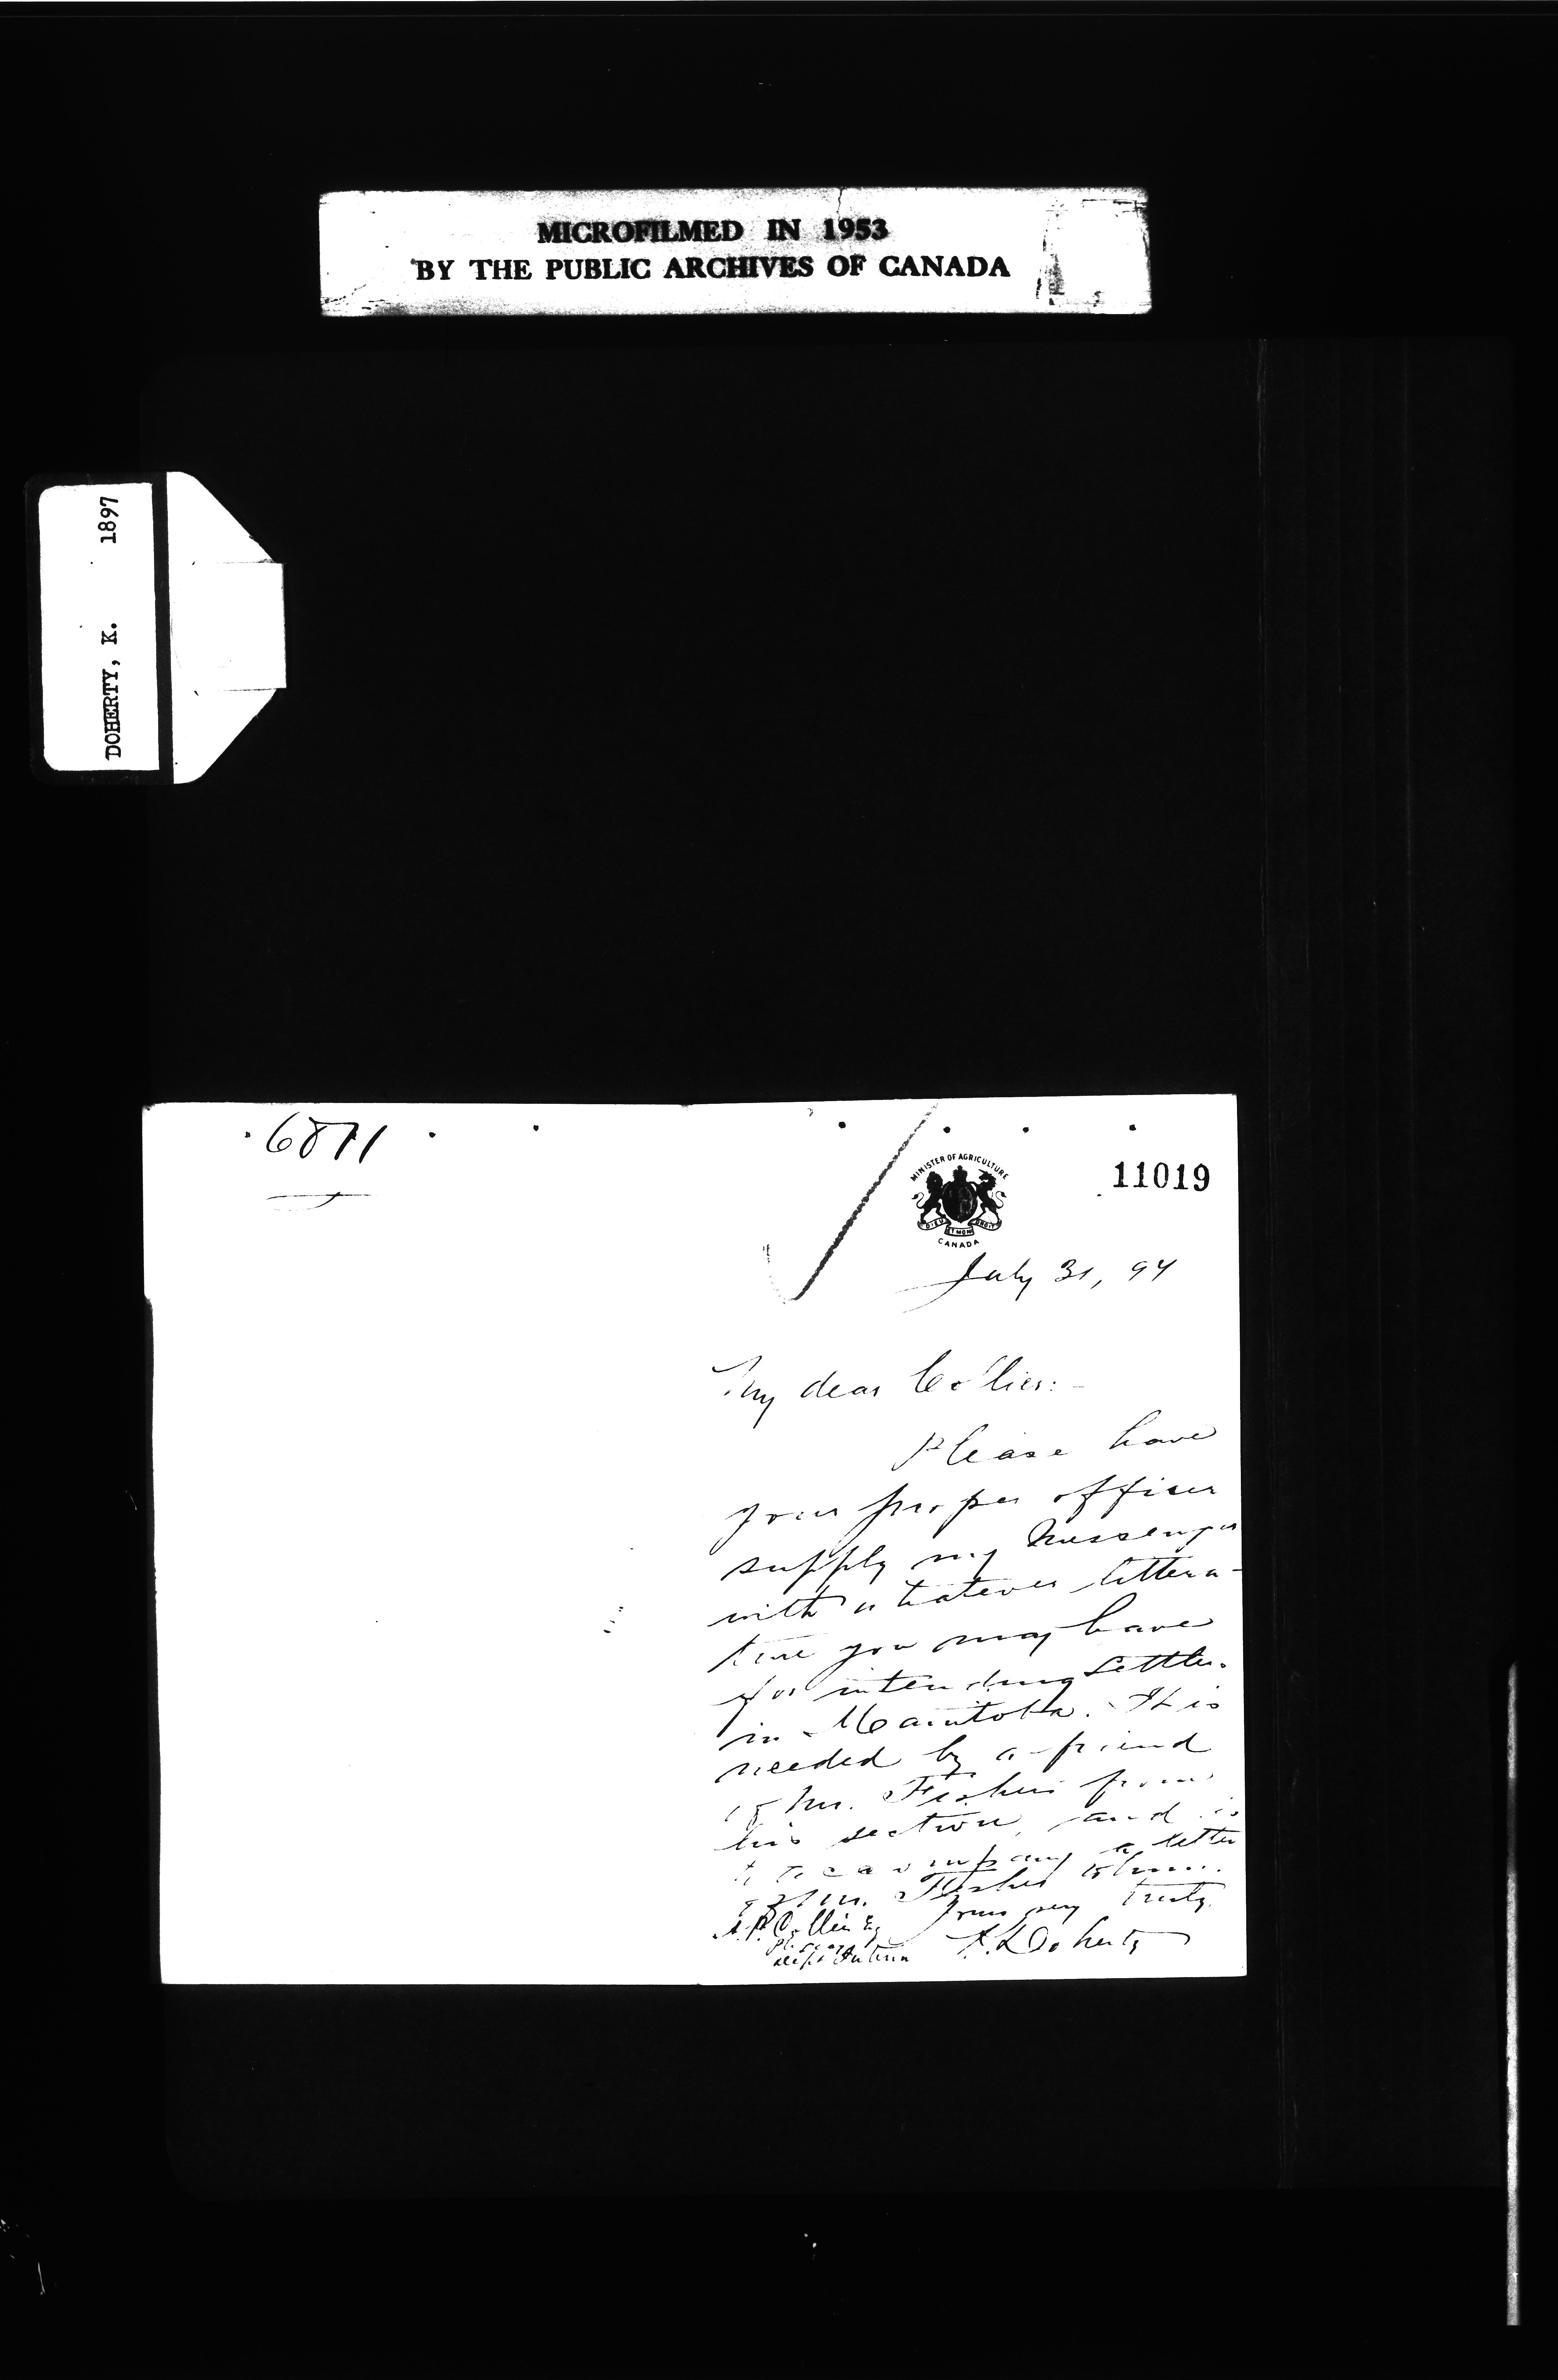 MICROFILMED IN 1953
BY THE PUBLIC ARCHIVES OF CANADA
DOHERTY, K. 1897
6871
MINISTER OF AGRICULTURE
DIEU ET MON DROIT
CANADA
11019
July 31, 97
My dear Collier:-
Please have
your proper officer
supply my Messenger
with whatever littera-
ture you may have
for intending Settlers
in Manitoba. It is
needed by a friend
of Mr. Fisher's from
his section, and is
to accompany a letter
of Mr. Fisher to him.
Yours very truly
K. Doherty
Collier Esq
Dept Interior